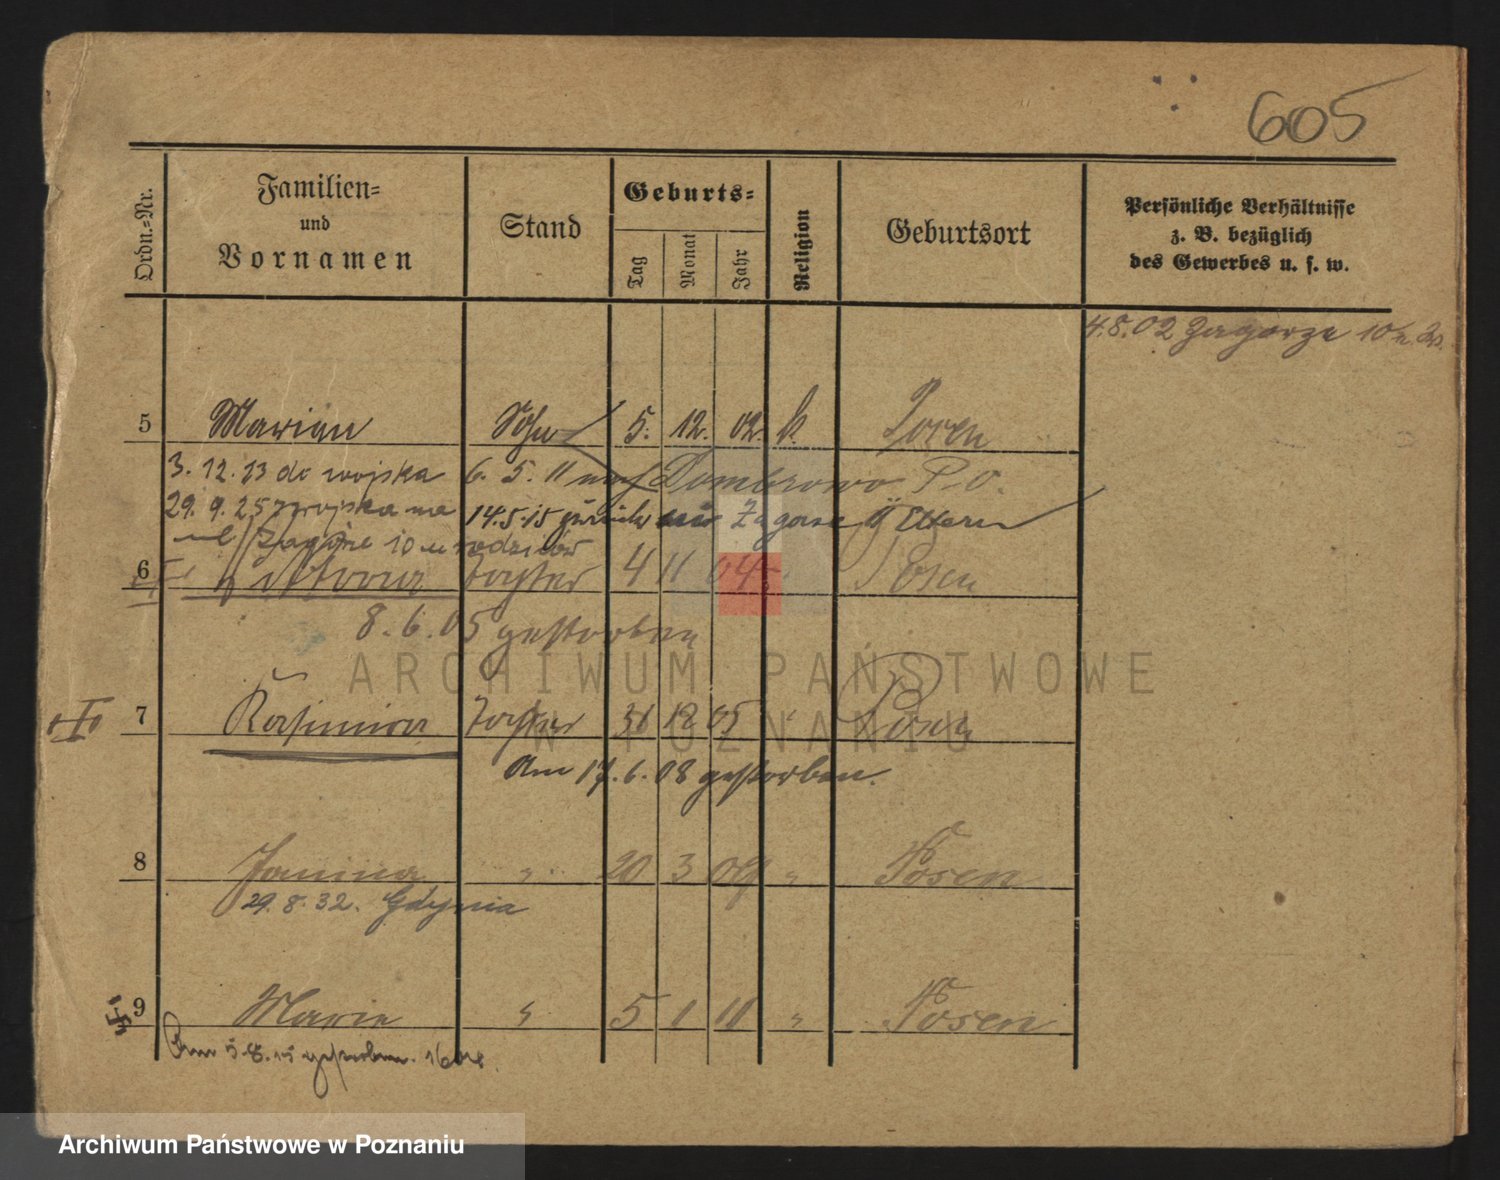 605
Ordn.=Nr.
Familien=
und
Vornamen
Stand
Geburts=
Tag
Monat
Jahr
Religion
Geburtsort
Persönliche Verhältnisse
z. B. bezüglich
des Gewerbes u. s. w.
4.8.02 Zagorze 10
5 Marian Sohn 5. 12. 02. k. Posen
3. 12. 23 do wojska 6. 5. 11 nach Dombrowo P. O.
29. 9. 25 z wojska na 14.5.15 zurück Zagorze Eltern
ul Zagórze 10 u rodziców
6 Tochter 4 11 04 Posen
8. 6. 05 gestorben
7 Kasimira Tochter 31 12 05 " Posen
Am 17. 6. 08 gestorben.
8 Janina " 20 3 09 " Posen
29. 8. 32. Gdynia
9 Marie " 5 1 11 " Posen
Am 5.8.15 gestorben.
ARCHIWUM PAŃSTWOWE
W POZNANIU
Archiwum Państwowe w Poznaniu